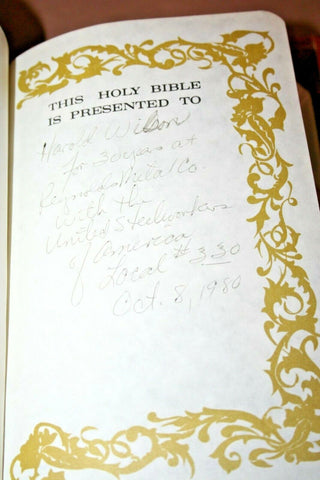 THIS HOLY BIBLE
IS PRESENTED TO
Harold Wilson
for 30 years at
Reynolds Metal Co.
With the
United Steelworkers
of America
Local # 330
Oct. 8, 1980